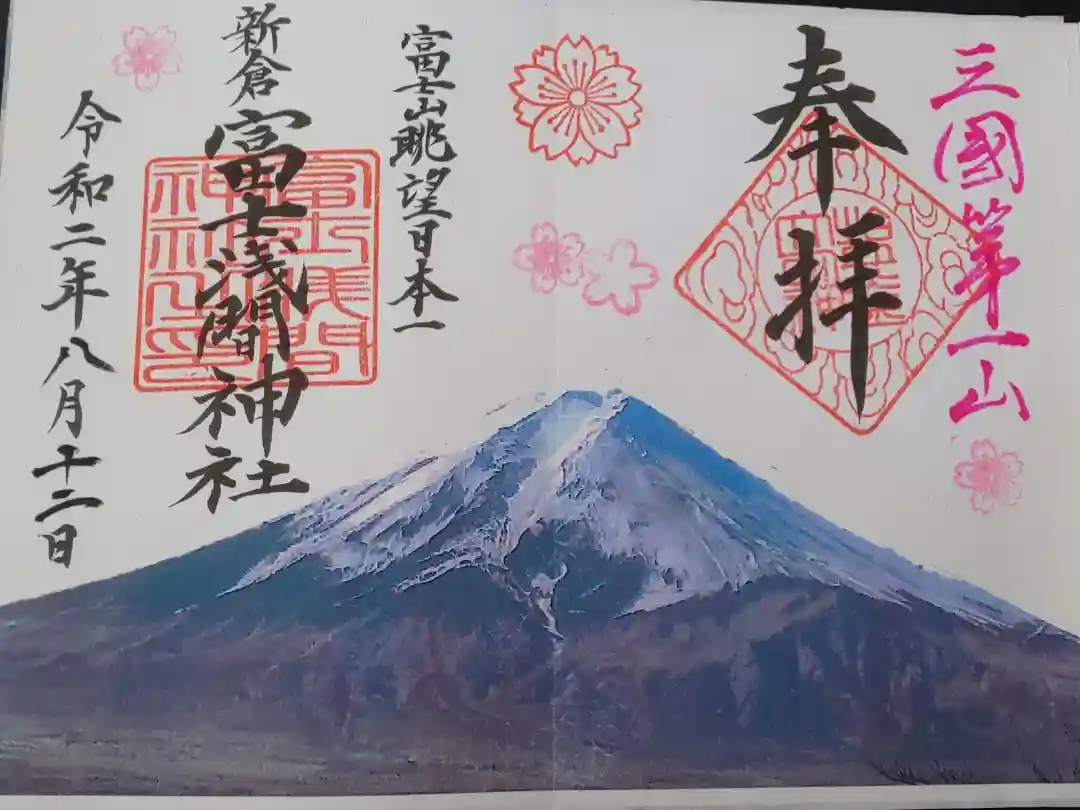 三國第一山
奉拝
富士山眺望日本一
新倉富士浅間神社
富士浅間
神社之印
令和二年八月十二日